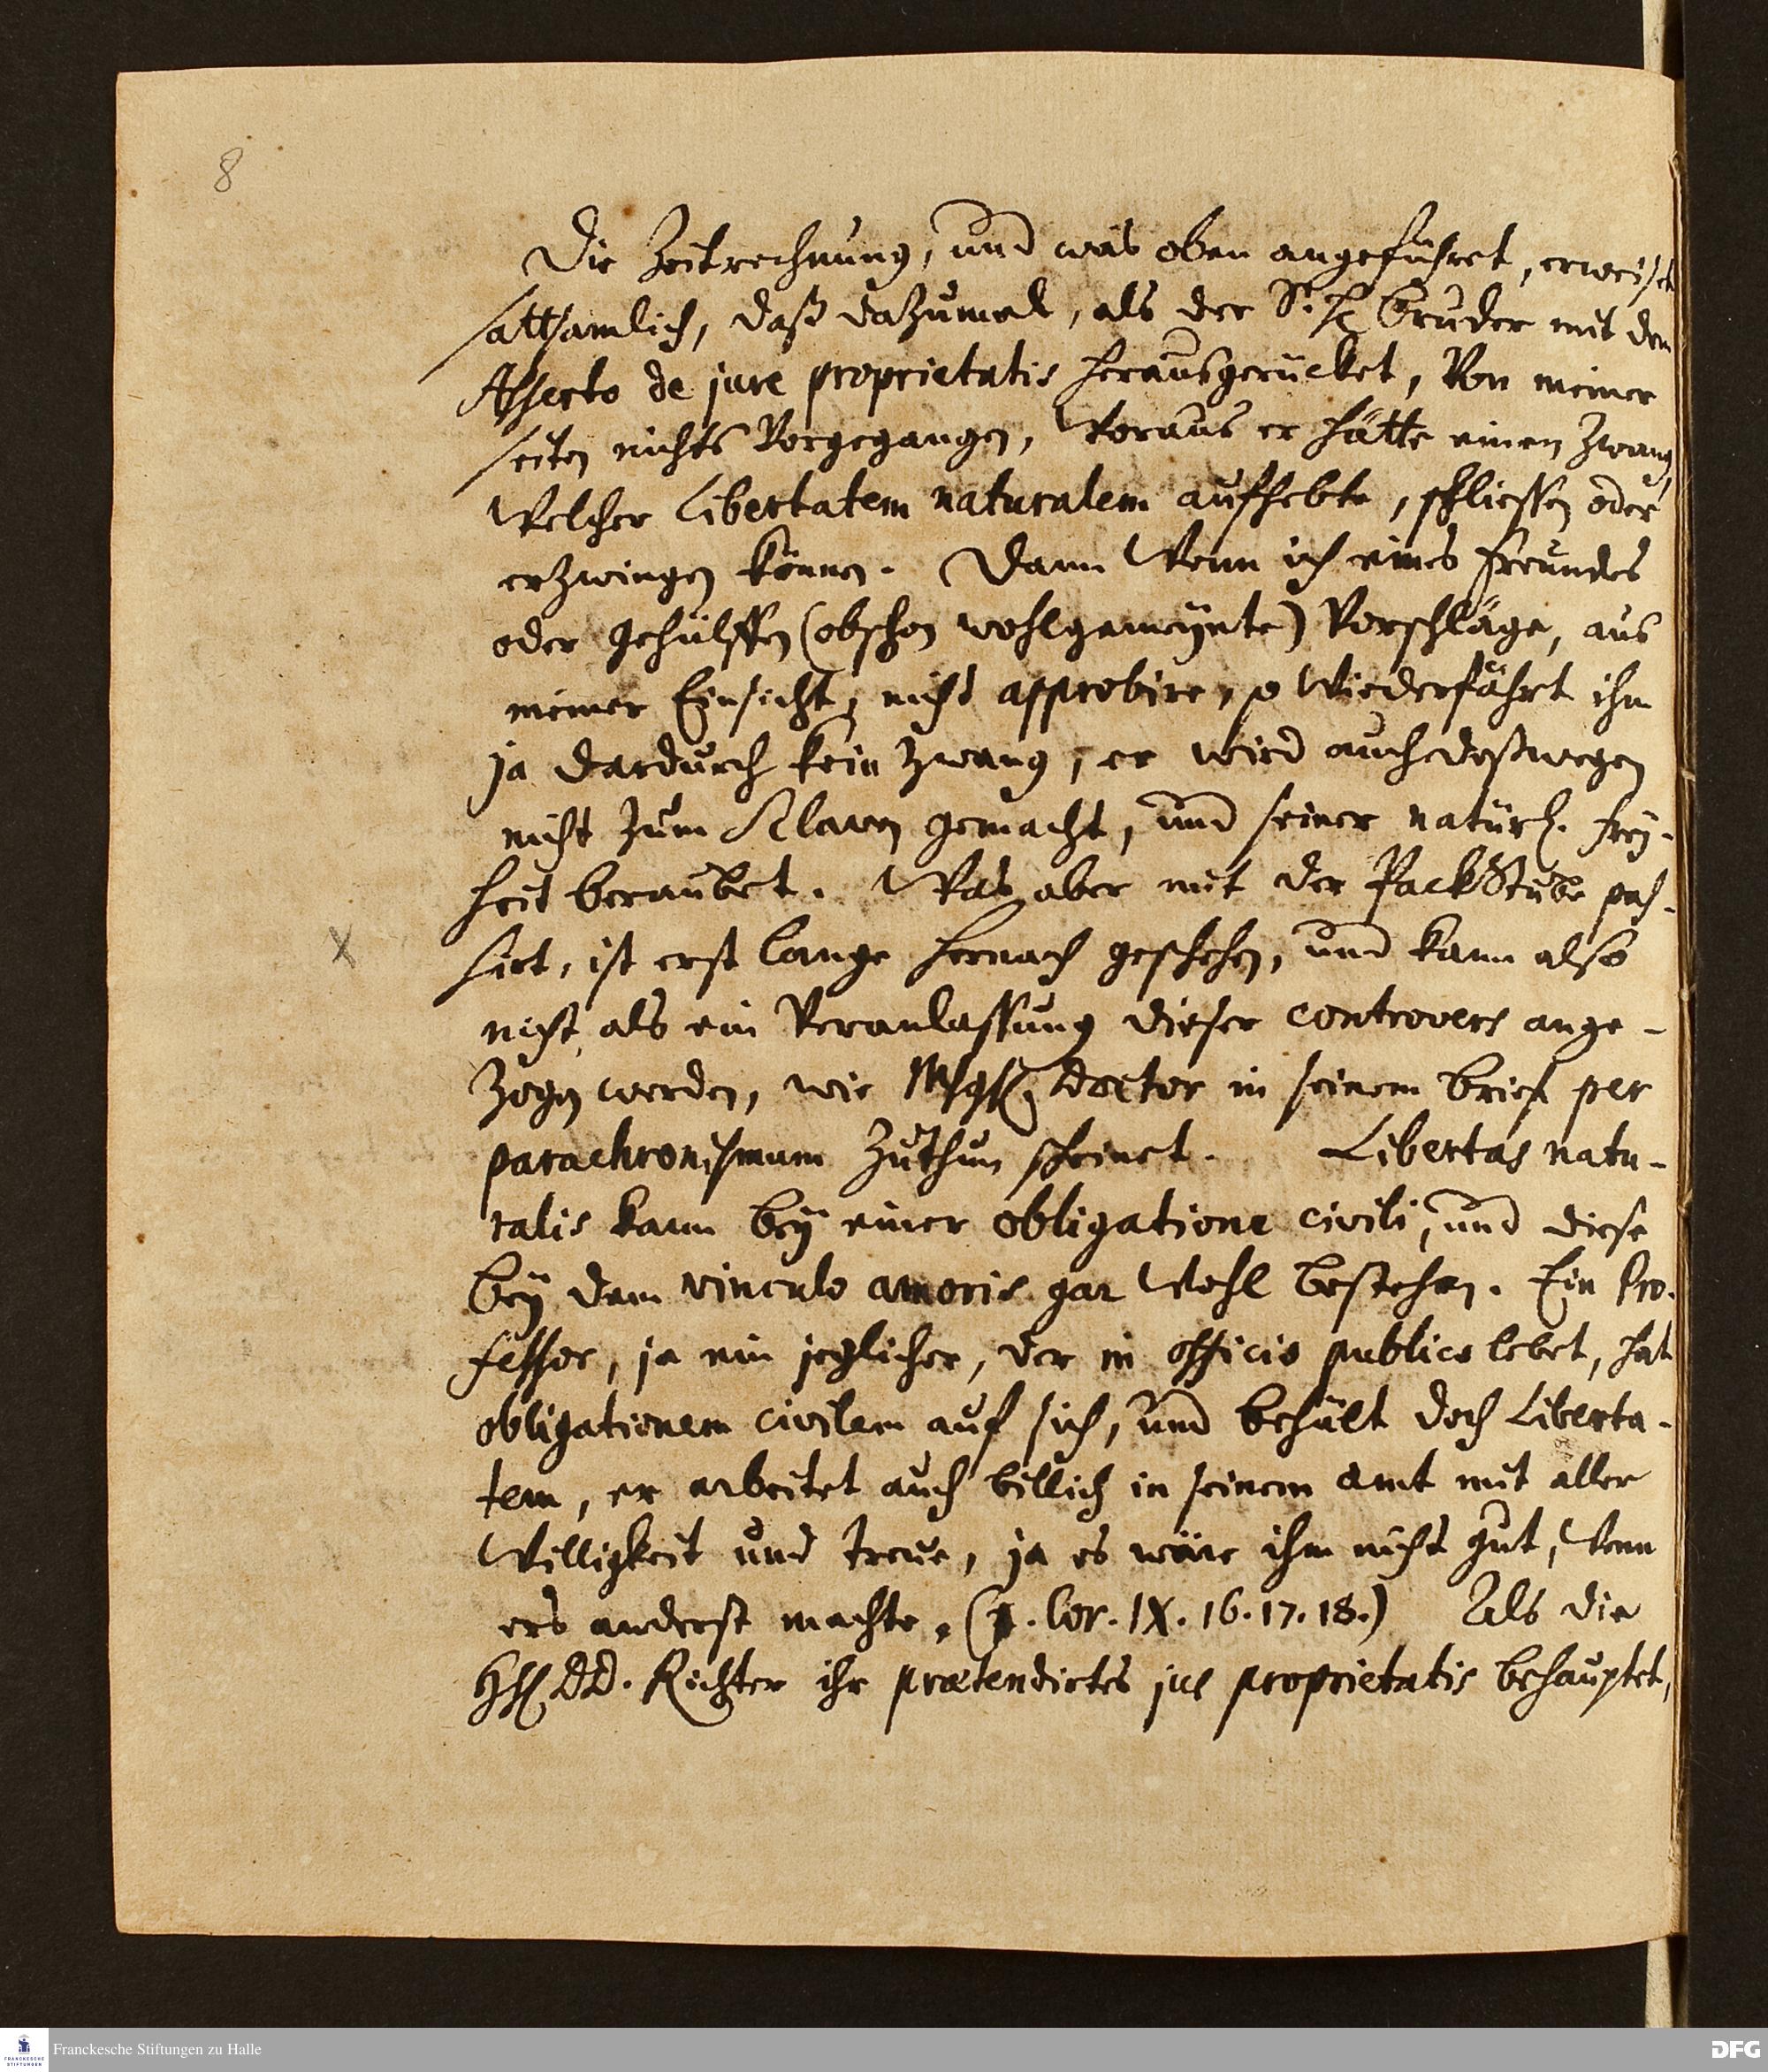 8
Die Zeitrechnung, und was oben angeführet, erweiset
sattsamlich, daß dazumal, als der Hr. Bruder mit dem
Asserto de jure proprietatis herausgerücket, Von meiner
seiten nichts Vorgegangen, Woraus er hätte einen Zwang,
Welcher Libertatem naturalem aufhebte, schliessen oder
erzwingen können. Dann Wenn ich eines freundes
oder gehülffen (obschon wohlgemeynte) Vorschläge, aus
meiner Einsicht, nicht approbire, so Wiederfährt ihm
ja dardurch kein Zwang, er wird auch deßwegen
nicht zum Sclaven gemacht, und seiner natürl. frey-
heit beraubet. Was aber mit der PackStube pas-
X
sirt, ist erst lange hernach geschehen, und kann also
nicht als ein Veranlassung dieser controvers ange-
zogen werden, wie Doctor in seinem brief per
parachronismum zuthun scheinet. Libertas natu-
ralis kann bey einer obligatione civili, und diese
bey dem vinculo amoris gar Wohl bestehen. Ein Pro-
fessor, ja ein jeglicher, der in officio publico lebet, hat
obligationem civilem auf sich, und behält doch Liberta-
tem, er arbeitet auch billich in seinem amt mit aller
Willigkeit und treue, ja es wäre ihm nicht gut, Wenn
ers anderst machte, (1. Cor. IX. 16. 17. 18.) Als die
HH. DD. Richter ihr prætendirtes jus proprietatis behauptet,
Franckesche Stiftungen zu Halle
FRANCKESCHE
STIFTUNGEN
DFG